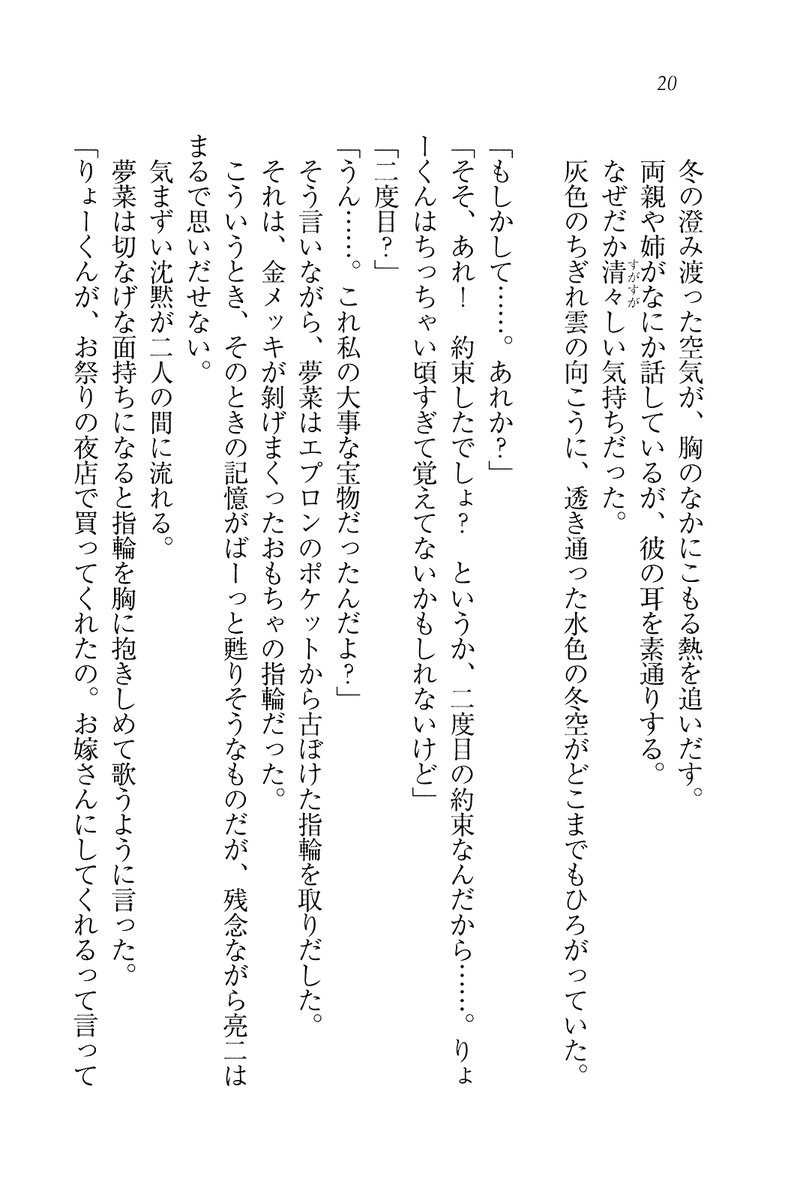 20
冬の澄み渡った空気が、胸のなかにこもる熱を追いだす。
両親や姉がなにか話しているが、彼の耳を素通りする。
なぜだか清々しい気持ちだった。
すがすが
灰色のちぎれ雲の向こうに、透き通った水色の冬空がどこまでもひろがっていた。
「もしかして……。あれか?」
「そそ、あれ！　約束したでしょ？　というか、二度目の約束なんだから……。りょ
ーくんはちっちゃい頃すぎて覚えてないかもしれないけど」
「二度目？」
「うん……。これ私の大事な宝物だったんだよ？」
そう言いながら、夢菜はエプロンのポケットから古ぼけた指輪を取りだした。
それは、金メッキが剝げまくったおもちゃの指輪だった。
こういうとき、そのときの記憶がばーっと甦りそうなものだが、残念ながら亮二は
まるで思いだせない。
気まずい沈黙が二人の間に流れる。
夢菜は切なげな面持ちになると指輪を胸に抱きしめて歌うように言った。
「りょーくんが、お祭りの夜店で買ってくれたの。お嫁さんにしてくれるって言って